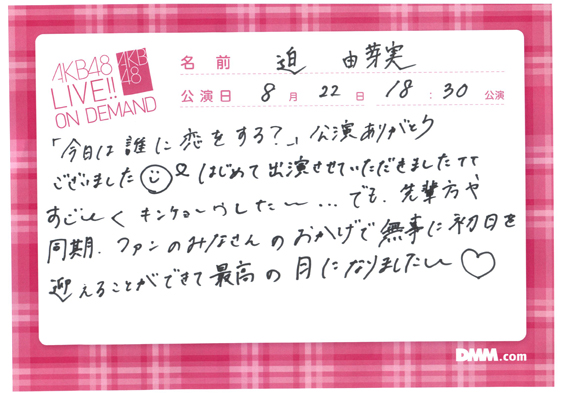 AKB48
LIVE!!
ON DEMAND
AKB
48
名前 迫 由芽実
公演日 8月 22日 18:30 公演
「今日は誰に恋をする?」公演ありがとう
ございました はじめて出演させていただきましたTT
すご〜くキンチョーしたー...でも、先輩方や
同期、ファンのみなさんのおかげで無事に初日を
迎えることができて最高の日になりました〜♡
DMM.com